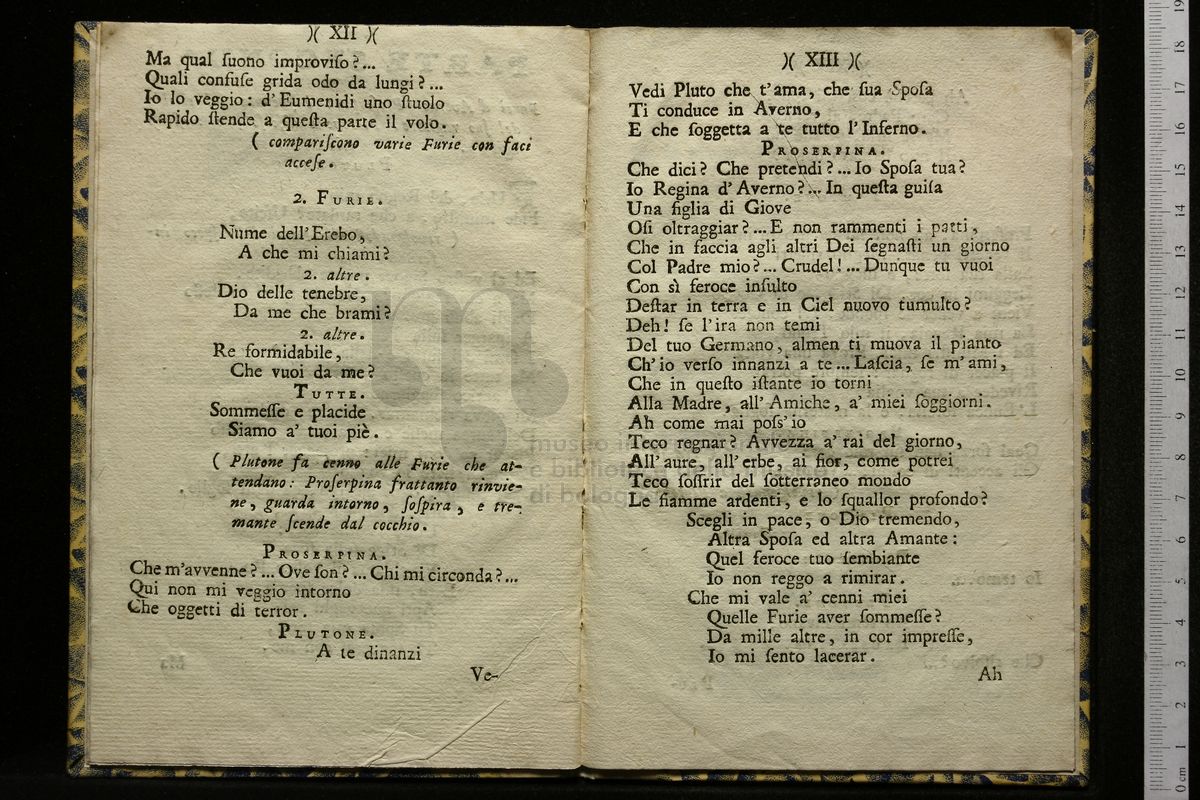 )( XII )(
Ma qual ſuono improviſo?...
Quali confuſe grida odo da lungi?...
Io lo veggio: d'Eumenidi uno ſtuolo
Rapido ſtende a queſta parte il volo.
( compariſcono varie Furie con faci
acceſe.
2. FURIE.
Nume dell'Erebo,
A che mi chiami?
2. altre.
Dio delle tenebre,
Da me che brami?
2. altre.
Re formidabile,
Che vuoi da me?
TUTTE.
Sommeſſe e placide
Siamo a' tuoi piè.
( Plutone fa cenno alle Furie che at-
tendano: Proſerpina frattanto rinvie-
ne, guarda intorno, ſoſpira, e tre-
mante ſcende dal cocchio.
PROSERPINA.
Che m'avvenne?... Ove ſon?... Chi mi circonda?...
Qui non mi veggio intorno
Che oggetti di terror.
PLUTONE.
A te dinanzi
Ve-
)( XIII )(
Vedi Pluto che t'ama, che ſua Spoſa
Ti conduce in Averno,
E che ſoggetta a te tutto l'Inferno.
PROSERPINA.
Che dici? Che pretendi?... Io Spoſa tua?
Io Regina d'Averno?... In queſta guiſa
Una figlia di Giove
Oſi oltraggiar?... E non rammenti i patti,
Che in faccia agli altri Dei ſegnaſti un giorno
Col Padre mio?... Crudel!... Dunque tu vuoi
Con sì feroce inſulto
Deſtar in terra e in Ciel nuovo tumulto?
Deh! ſe l'ira non temi
Del tuo Germano, almen ti muova il pianto
Ch'io verſo innanzi a te... Laſcia, ſe m'ami,
Che in queſto iſtante io torni
Alla Madre, all'Amiche, a' miei ſoggiorni.
Ah come mai poſs'io
Teco regnar? Avvezza a' rai del giorno,
All'aure, all'erbe, ai fior, come potrei
Teco ſoffrir del ſotterraneo mondo
Le fiamme ardenti, e lo ſquallor profondo?
Scegli in pace, o Dio tremendo,
Altra Spoſa ed altra Amante:
Quel feroce tuo ſembiante
Io non reggo a rimirar.
Che mi vale a' cenni miei
Quelle Furie aver ſommeſſe?
Da mille altre, in cor impreſſe,
Io mi ſento lacerar.
Ah